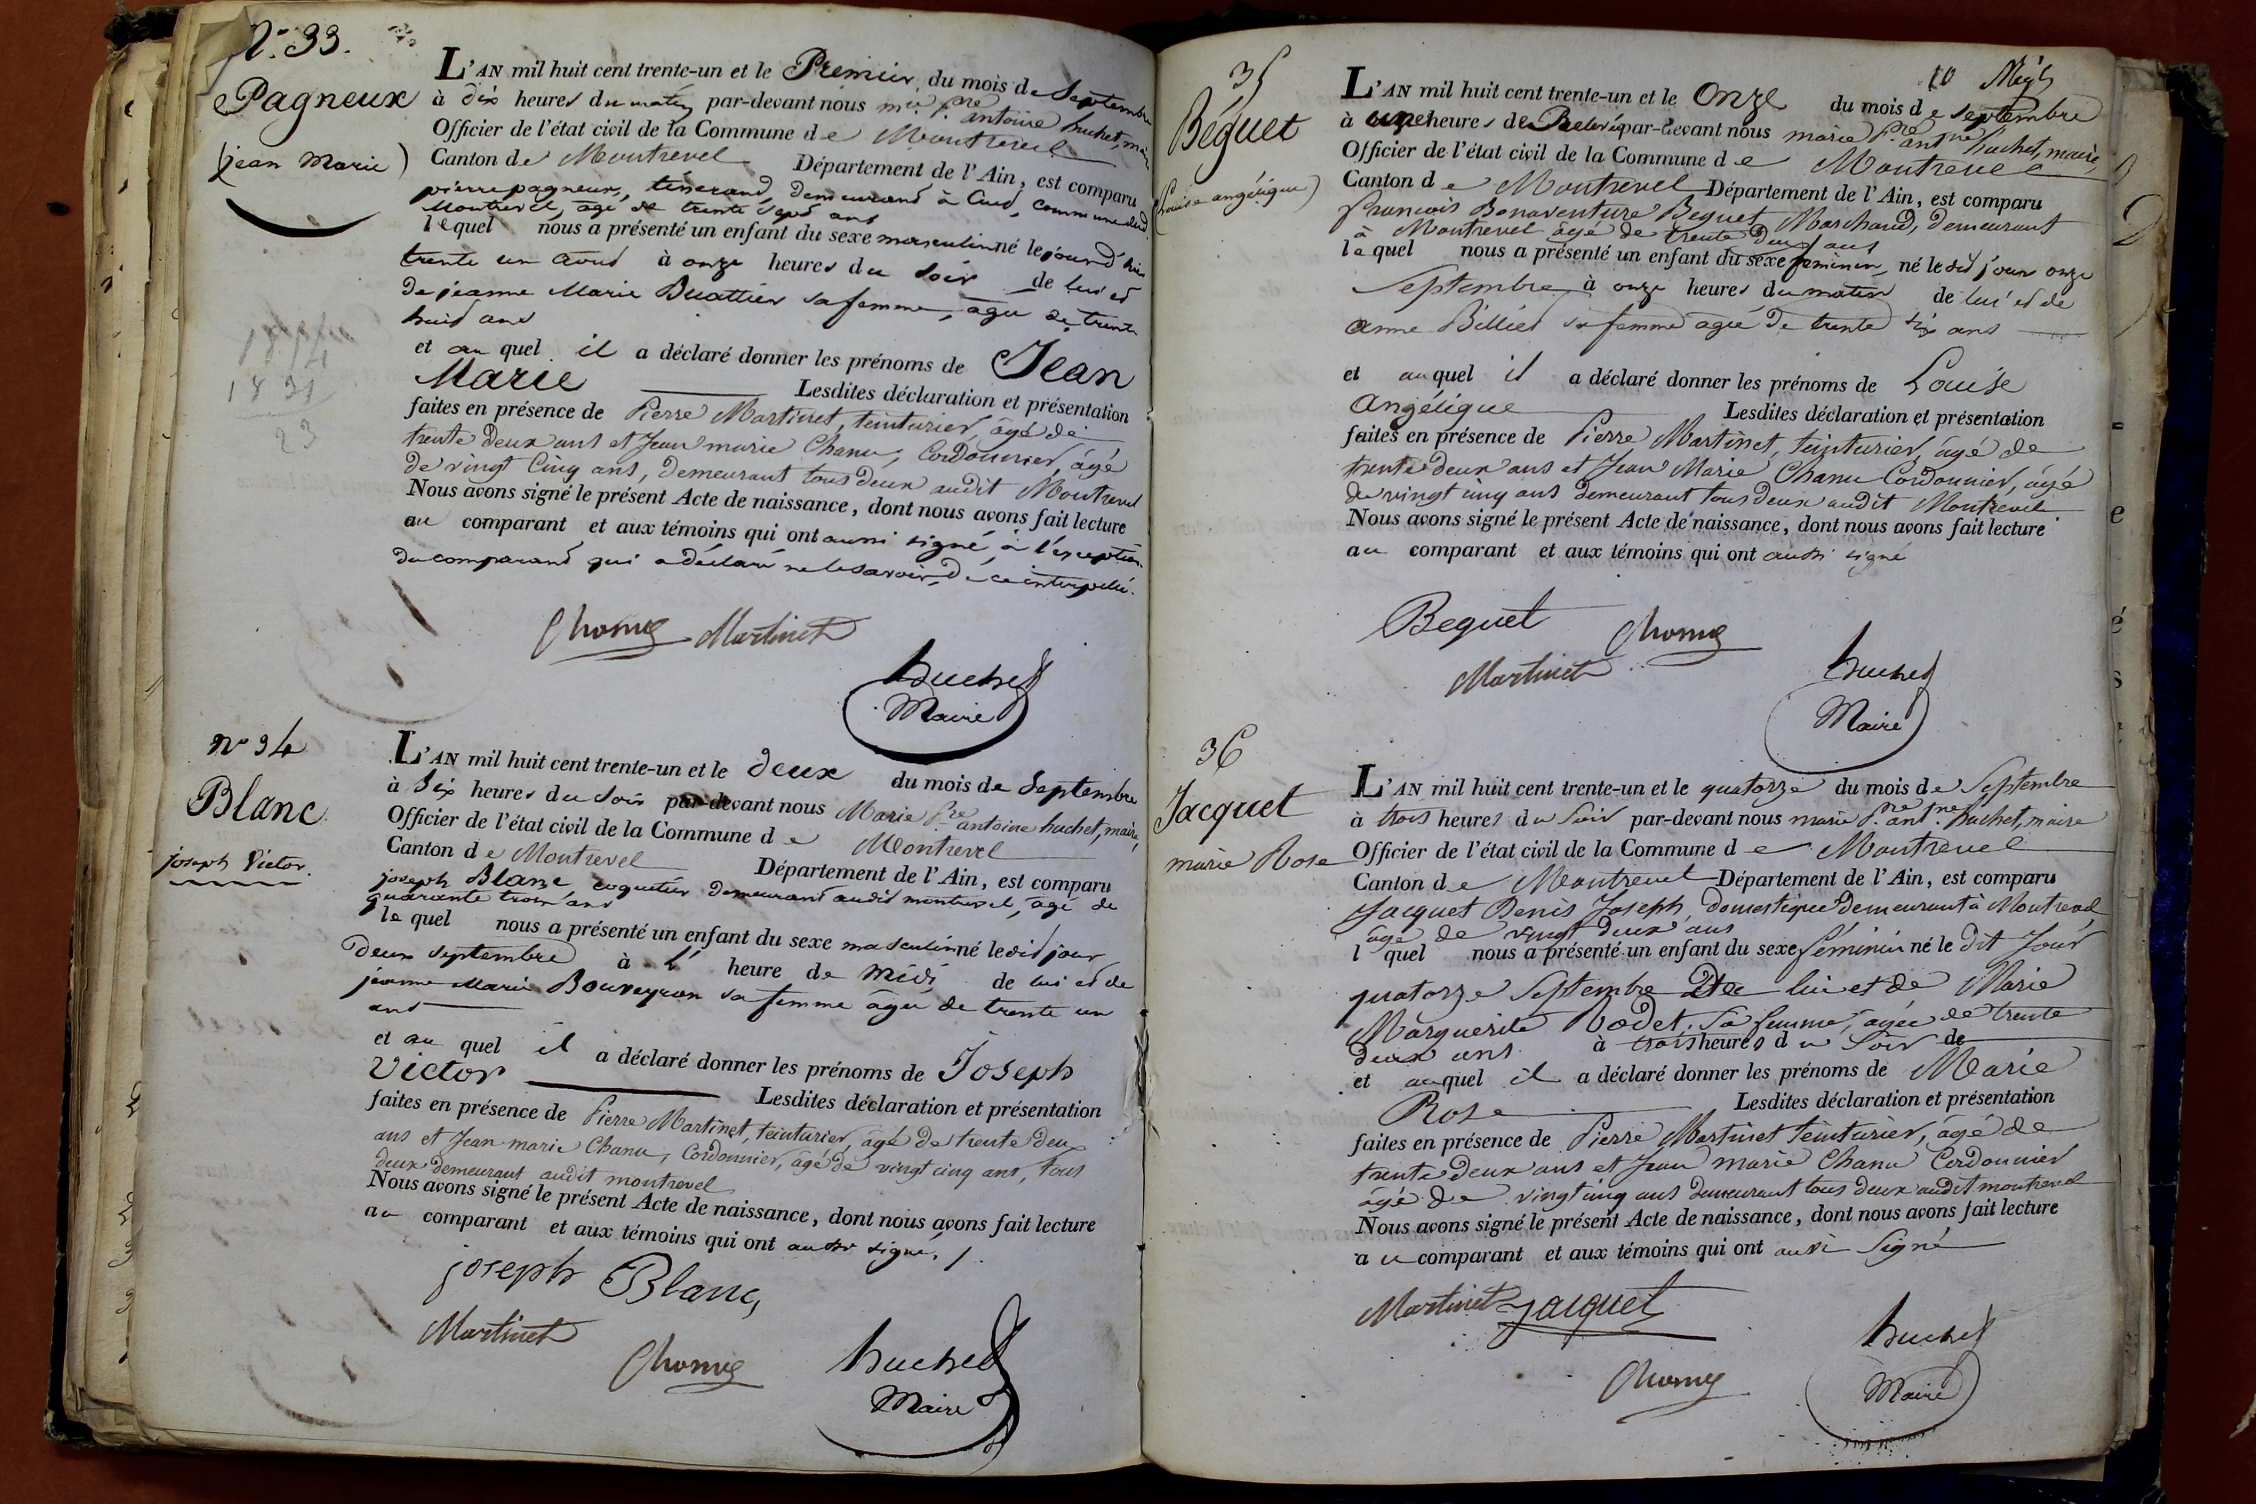 N° 33.
Pagneux
(jean Marie)
L'AN mil huit cent trente-un et le Premier du mois de Septembre
à dix heures du matin par-devant nous m.ie P.re antoine huchet, maire
Officier de l'état civil de la Commune de Montrevel
Canton de Montrevel Département de l'Ain, est comparu
pierre pagneux, tisserand, demeurant à Cuet, commune dud.
Montrevel, agé de trente sept ans
lequel nous a présenté un enfant du sexe masculin né le jour d'hier
trente un aout à onze heures du soir de lui et
de jeanne Marie Buattier sa femme, agée de trente
huit ans
et au quel il a déclaré donner les prénoms de Jean
Marie Lesdites déclaration et présentation
faites en présence de Pierre Martinet, teinturier, agé de
trente deux ans et Jean marie Chanu, Cordonnier, âgé
de vingt Cinq ans, demeurant tous deux audit Montrevel
Nous avons signé le présent Acte de naissance, dont nous avons fait lecture
au comparant et aux témoins qui ont aussi signé, à l'exception
du comparant qui a déclaré ne le savoir, de ce interpellé.
Martinet
huchet
Maire
1831
23
N° 34
Blanc
joseph Victor.
L'AN mil huit cent trente-un et le deux du mois de Septembre
à Six heures du Soir par-devant nous Marie P.re antoine huchet, maire,
Officier de l'état civil de la Commune de Montrevel
Canton de Montrevel Département de l'Ain, est comparu
joseph Blanc, coquetier demeurant audit montrevel, agé de
quarante trois ans
lequel nous a présenté un enfant du sexe masculin né le dit jour
deux septembre à l' heure de midi de lui et de
jeanne Marie Bouveyron sa femme agée de trente un
ans
et au quel il a déclaré donner les prénoms de Joseph
Victor Lesdites déclaration et présentation
faites en présence de Pierre Martinet, teinturier, âgé de trente deux
ans et Jean marie Chanu, Cordonnier, âgé de vingt cinq ans, tous
deux demeurant audit montrevel
Nous avons signé le présent Acte de naissance, dont nous avons fait lecture
au comparant et aux témoins qui ont aussi signé.
joseph Blanc,
Martinet
huchet
Maire
10
35
Béguet
(Louise angélique)
L'AN mil huit cent trente-un et le Onze du mois de septembre
à heures de Relevé par-devant nous marie P.re ant.ne huchet, maire,
Officier de l'état civil de la Commune de Montrevel
Canton de Montrevel Département de l'Ain, est comparu
françois Bonaventure Beguet Marchand, demeurant
à Montrevel agé de trente deux ans
lequel nous a présenté un enfant du sexe féminin, né le dit jour onze
Septembre à onze heures du matin de lui et de
anne Billiet sa femme agée de trente six ans
et auquel il a déclaré donner les prénoms de Louise
Angélique Lesdites déclaration et présentation
faites en présence de Pierre Martinet, teinturier, âgé de
trente deux ans et Jean Marie Chanu Cordonnier, âgé
de vingt cinq ans demeurant tous deux audit Montrevel
Nous avons signé le présent Acte de naissance, dont nous avons fait lecture
au comparant et aux témoins qui ont aussi signé
Beguet
Martinet
huchet
Maire
36
Jacquet
marie Rose
L'AN mil huit cent trente-un et le quatorze du mois de Septembre
à trois heures du Soir par-devant nous marie P.re ant.ne huchet, maire
Officier de l'état civil de la Commune de Montrevel
Canton de Montrevel Département de l'Ain, est comparu
Jacquet Denis Joseph, domestique demeurant à Montrevel
âgé de vingt deux ans
l quel nous a présenté un enfant du sexe féminin né le dit Jour
quatorze Septembre De lui et de Marie
Marguerite Vodet, Sa femme, agée de trente
deux ans à trois heures du Soir de
et auquel il a déclaré donner les prénoms de Marie
Rose Lesdites déclaration et présentation
faites en présence de Pierre Martinet teinturier, âgé de
trente deux ans et Jean marie Chanu Cordonnier
âgé de vingt cinq ans demeurant tous deux audit montrevel
Nous avons signé le présent Acte de naissance, dont nous avons fait lecture
au comparant et aux témoins qui ont aussi Signé
Martinet Jacquet
huchet
Maire